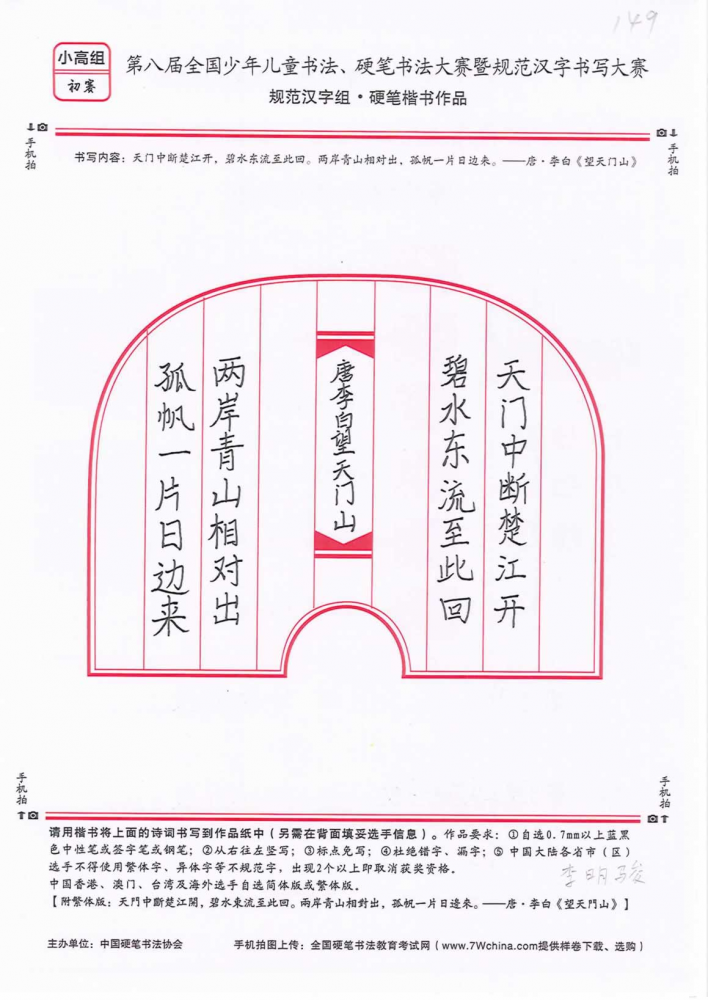 149
小高组
初赛
第八届全国少年儿童书法、硬笔书法大赛暨规范汉字书写大赛
规范汉字组·硬笔楷书作品
手机拍
手机拍
书写内容：天门中断楚江开，碧水东流至此回。两岸青山相对出，孤帆一片日边来。——唐·李白《望天门山》
天门中断楚江开
碧水东流至此回
唐李白望天门山
两岸青山相对出
孤帆一片日边来
手机拍
手机拍
请用楷书将上面的诗词书写到作品纸中（另需在背面填妥选手信息）。作品要求：①自选0.7mm以上蓝黑
色中性笔或签字笔或钢笔；②从右往左竖写；③标点免写；④杜绝错字、漏字；⑤ 中国大陆各省市（区）
选手不得使用繁体字、异体字等不规范字，出现2个以上即取消获奖资格。
中国香港、澳门、台湾及海外选手自选简体版或繁体版。
李明骏
【附繁体版：天門中斷楚江開，碧水東流至此回。兩岸青山相對出，孤帆一片日邊來。——唐·李白《望天門山》】
主办单位：中国硬笔书法协会
手机拍图上传：全国硬笔书法教育考试网（www.7Wchina.com提供样卷下载、选购）